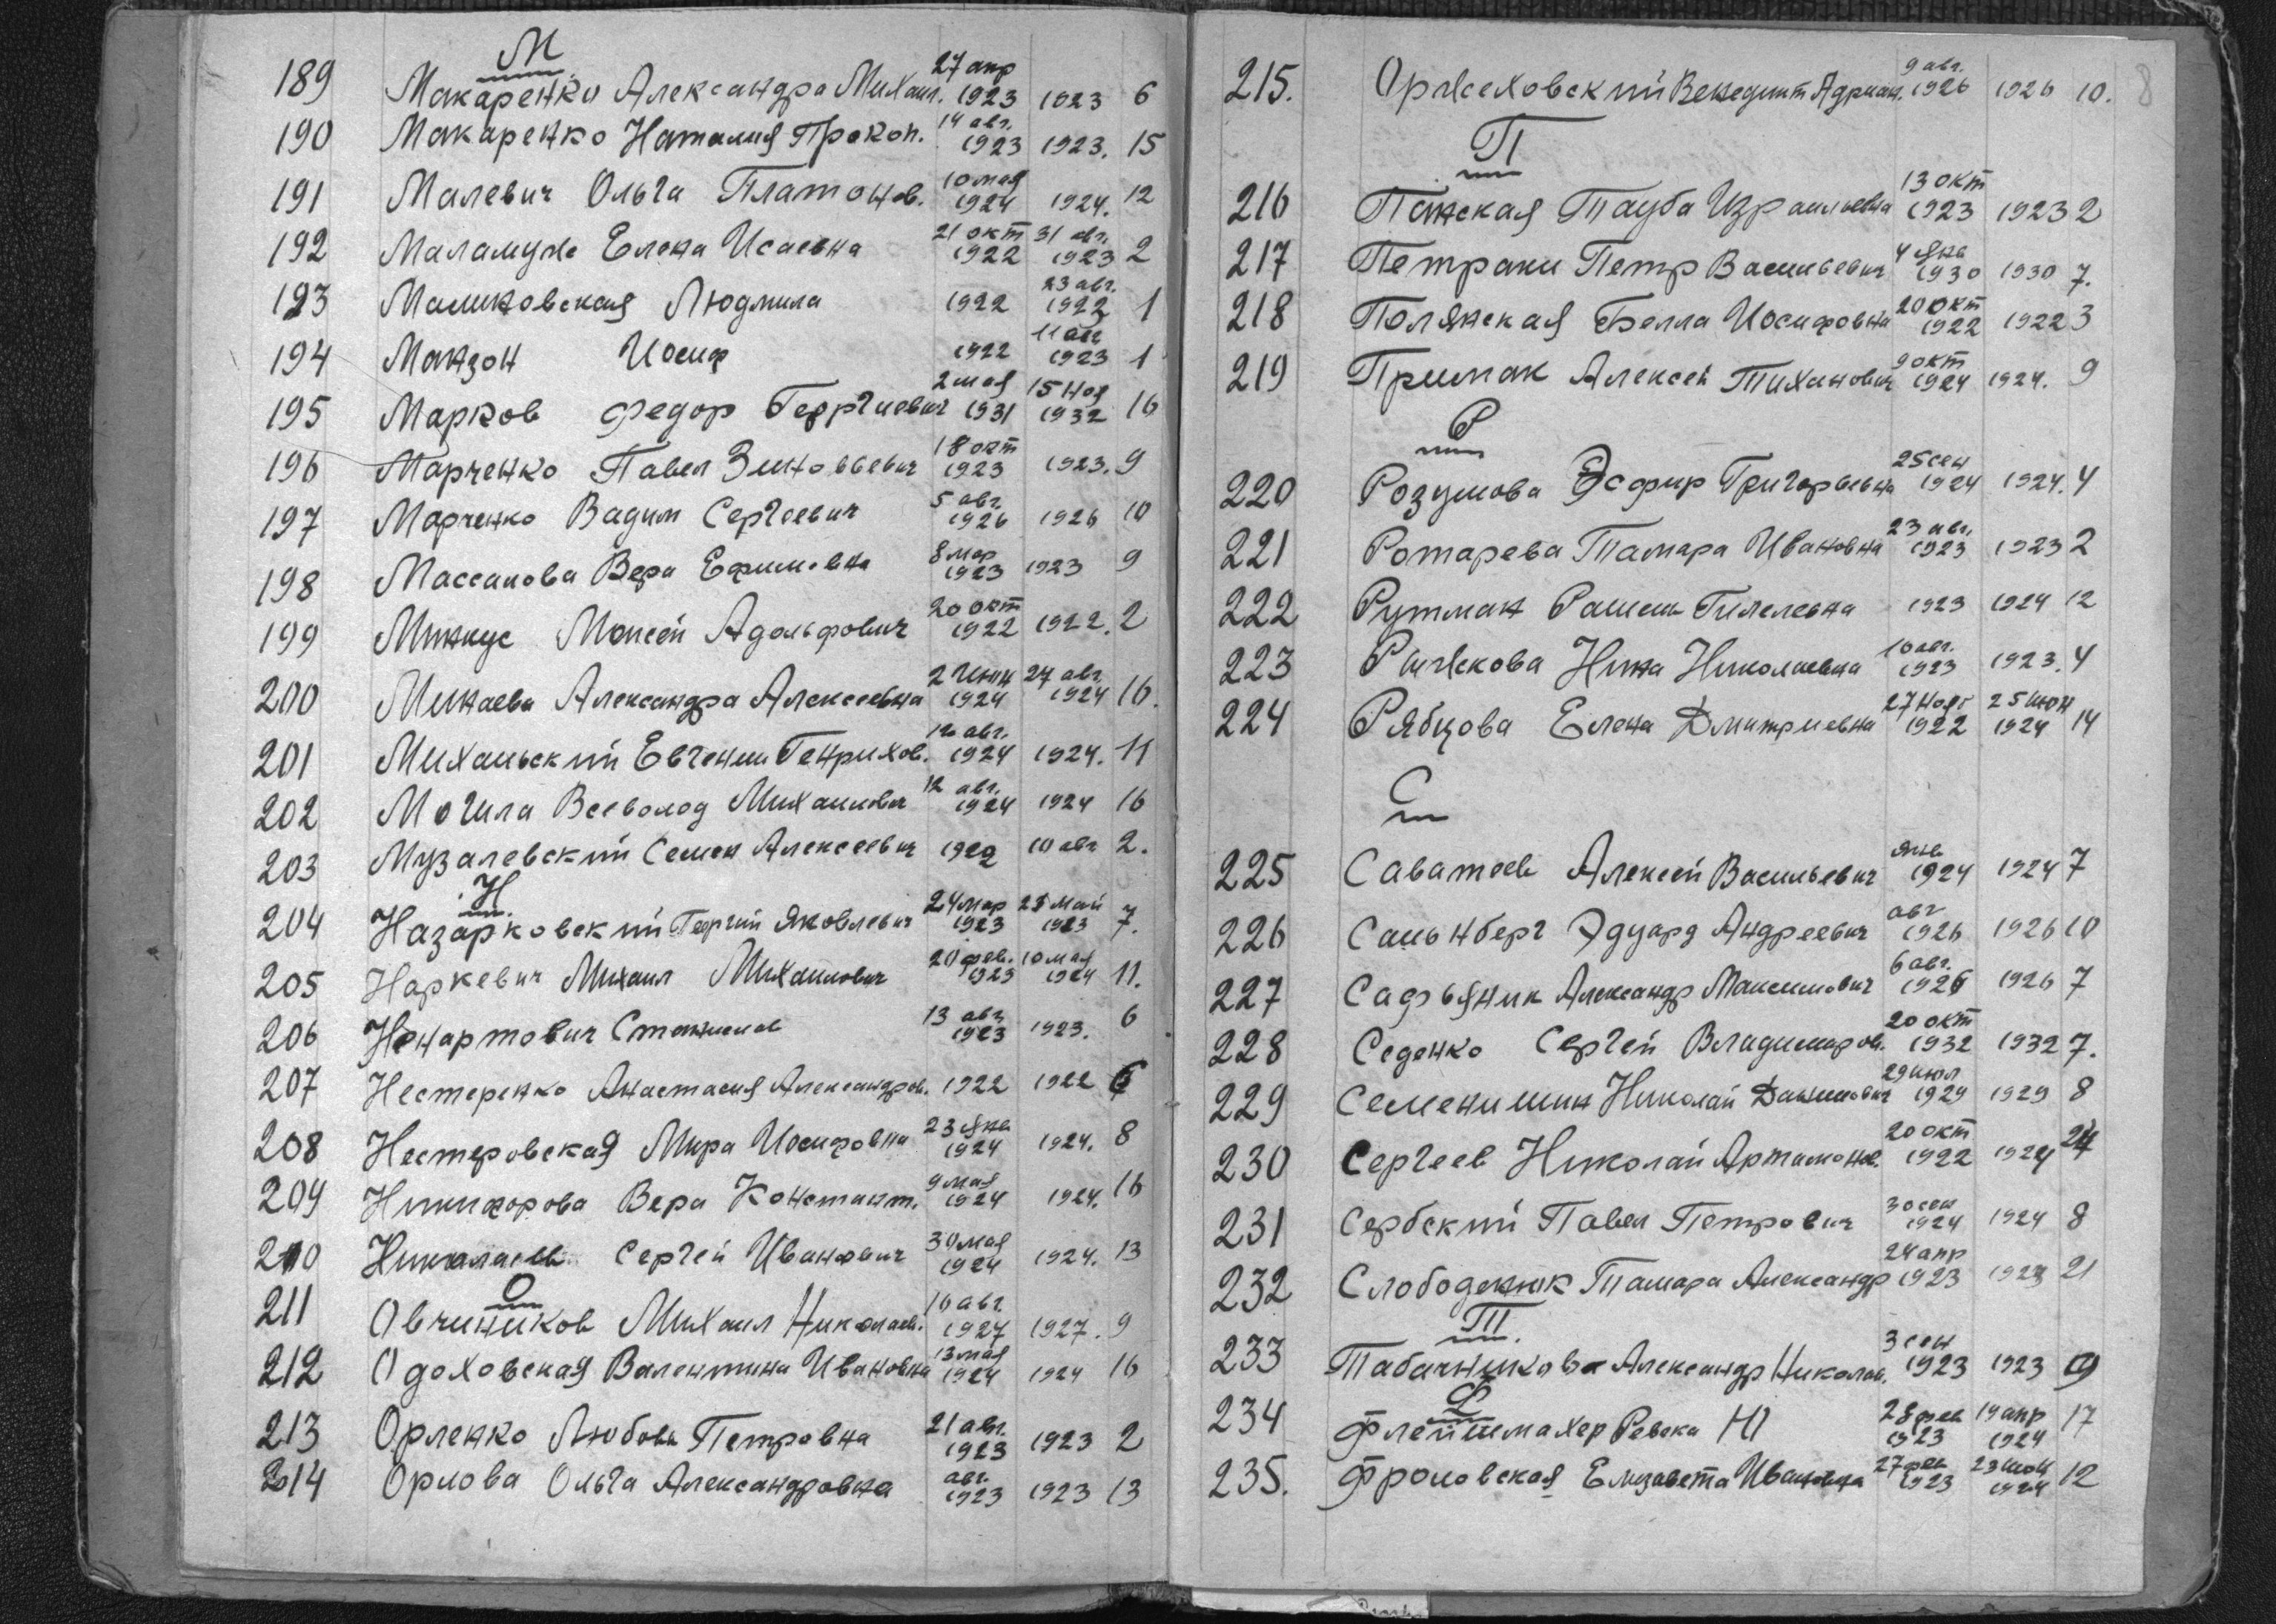 М
189 Макаренко Александра Михаил. 27 апр 1923 1923 6
190 Макаренко Наталия Прокоп. 14 авг. 1923 1923. 15
191 Малевич Ольга Платонов. 10 мая 1924 1924. 12
192 Маламуде Елена Исаевна 21 окт 1922 31 авг. 1923 2
193 Малиновская Людмила 1922 23 авг. 1922 1
194 Манзон Иосиф 1922 11 авг 1923 1
195 Марков Федор Георгиевич 2 мая 1931 15 ноя 1932 16
196 Марченко Павел Зиновьевич 18 окт 1923 1923. 9
197 Марченко Вадим Сергеевич 5 авг. 1926 1926 10
198 Массанова Вера Ефимовна 8 мар 1923 1923 9
199 Минкус Моисей Адольфович 20 окт 1922 1922. 2
200 Минаева Александра Алексеевна 2 июн 1924 27 авг. 1924 16.
201 Михальский Евгений Генрихов. 12 авг. 1924 1924. 11
202 Могила Всеволод Михайлович 12 авг. 1924 1924 16
203 Музалевский Семен Алексеевич 1922 10 авг 2.
Н
204 Назарковский Георгий Яковлевич 24 мар 1923 25 май 1923 7.
205 Наркевич Михаил Михайлович 20 фев. 1923 10 мая 1924 11.
206 Ненартович Станислав 13 авг 1923 1923. 6
207 Нестеренко Анастасия Александров. 1922 1922 6
208 Нестеровская Мира Иосифовна 23 янв 1924 1924. 8
209 Никифорова Вера Констант. 9 мая 1924 1924. 16
210 Николаев Сергей Иванович 30 мая 1924 1924. 13
О
211 Овчиников Михаил Николаев. 10 авг. 1927 1927. 9
212 Одоховская Валентина Ивановна 13 мая 1924 1924 16
213 Орленко Любовь Петровна 21 авг. 1923 1923 2
214 Орлова Ольга Александровна авг. 1923 1923 13
8
215. Оржеховский Венедикт Адриан. 9 авг. 1926 1926 10.
П
216 Панская Тауба Израильевна 13 окт 1923 1923 2
217 Петраки Петр Васильевич 4 янв 1930 1930 7.
218 Полянская Белла Иосифовна 20 окт 1922 1922 3
219 Примак Алексей Тиханович 9 окт 1924 1924. 9
Р
220 Розумова Эсфир Григорьевна 25 сен 1924 1924. 4
221 Ротарева Тамара Ивановна 23 авг. 1923 1923 2
222 Рутман Рашель Гилелевна 1923 1924 12
223 Рыжкова Нина Николаевна 10 авг. 1923 1923. 4
224 Рябцова Елена Дмитриевна 27 нояб 1922 25 июн 1924 14
С
225 Саватеев Алексей Васильевич янв 1924 1924 7
226 Сальнберг Эдуард Андреевич авг 1926 1926 10
227 Сафьяник Александр Максимович 6 авг. 1926 1926 7
228 Седенко Сергей Владимиров. 20 окт 1932 1932 7.
229 Семенишин Николай Данилович 29 июл 1929 1929 8
230 Сергеев Николай Артамонов. 20 окт 1922 1924 24
231 Сербский Павел Петрович 30 сен 1924 1924 8
232 Слободенюк Тамара Александр 24 апр 1923 1923 21
Т
233 Табачникова Александр Николав. 3 сен 1923 1923 9
Ф
234 Флейшмахер Ревека И 28 фев 1923 19 апр 1924 17
235. Фроловская Елизавета Ивановна 27 фев 1923 23 июн 1924 12